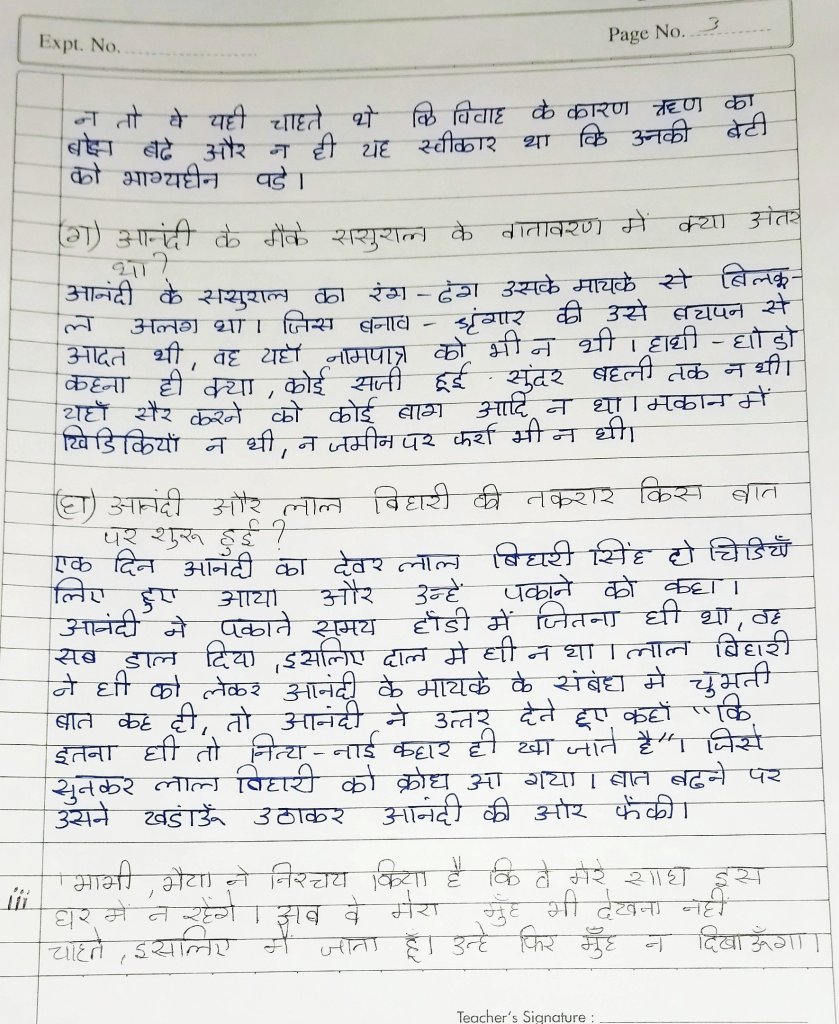 Expt. No.
Page No. 3
न तो वे यही चाहते थे कि विवाह के कारण ऋण का
बोझ बढे और न ही यह स्वीकार था कि उनकी बेटी
को भाग्यहीन पडे।
(ग) आनंदी के मैके ससुराल के वातावरण में क्या अंतर
था?
आनंदी के ससुराल का रंग-ढंग उसके मायके से बिलकू-
ल अलग था। जिस बनाव - श्रृंगार की उसे बचपन से
आदत थी, वह यहाँ नामपात्र को भी न थी। हाथी - घोडो
कहना ही क्या, कोई सजी हूई सुंदर बहली तक न थी।
यहाँ सैर करने को कोई बाग आदि न था। मकान में
खिडिकियाँ न थी, न जमीन पर फर्श भी न थी।
(घ) आनंदी और लाल बिहारी की तकरार किस बात
पर शुरू हुई?
एक दिन आनंदी का देवर लाल बिहारी सिंह दो चिडियाँ
लिए हुए आया और उन्हें पकाने को कहा।
आनंदी ने पकाते समय हाँडी में जितना घी था, वह
सब डाल दिया, इसलिए दाल मे घी न था। लाल बिहारी
ने घी को लेकर आनंदी के मायके के संबंध मे चुभती
बात कह दी, तो आनंदी ने उत्तर देते हूए कहाँ "कि
इतना घी तो नित्य - नाई कहार ही खा जाते है"। जिसे
सुनकर लाल बिहारी को क्रोध आ गया। बात बढने पर
उसने खडांऊँ उठाकर आनंदी की ओर फेंकी।
iii 'भाभी, भैया ने निश्चय किया है कि वे मेरे साथ इस
घर में न रहेंगे। अब वे मेरा मुँह भी देखना नहीं
चाहते, इसलिए में जाता हूँ। उन्हे फिर मुँह न दिखाऊँगा।
Teacher's Signature :